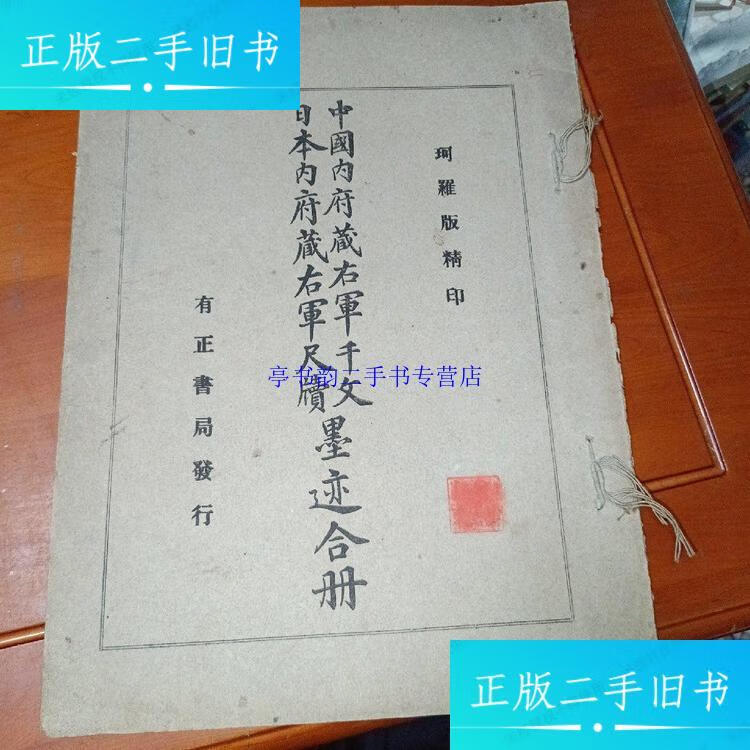 正版二手旧书
珂羅版精印
中國内府蔵右軍千文
日本内府蔵右軍尺牘
墨迹合册
有正書局發行
亭书韵二手书专营店
正版二手旧书